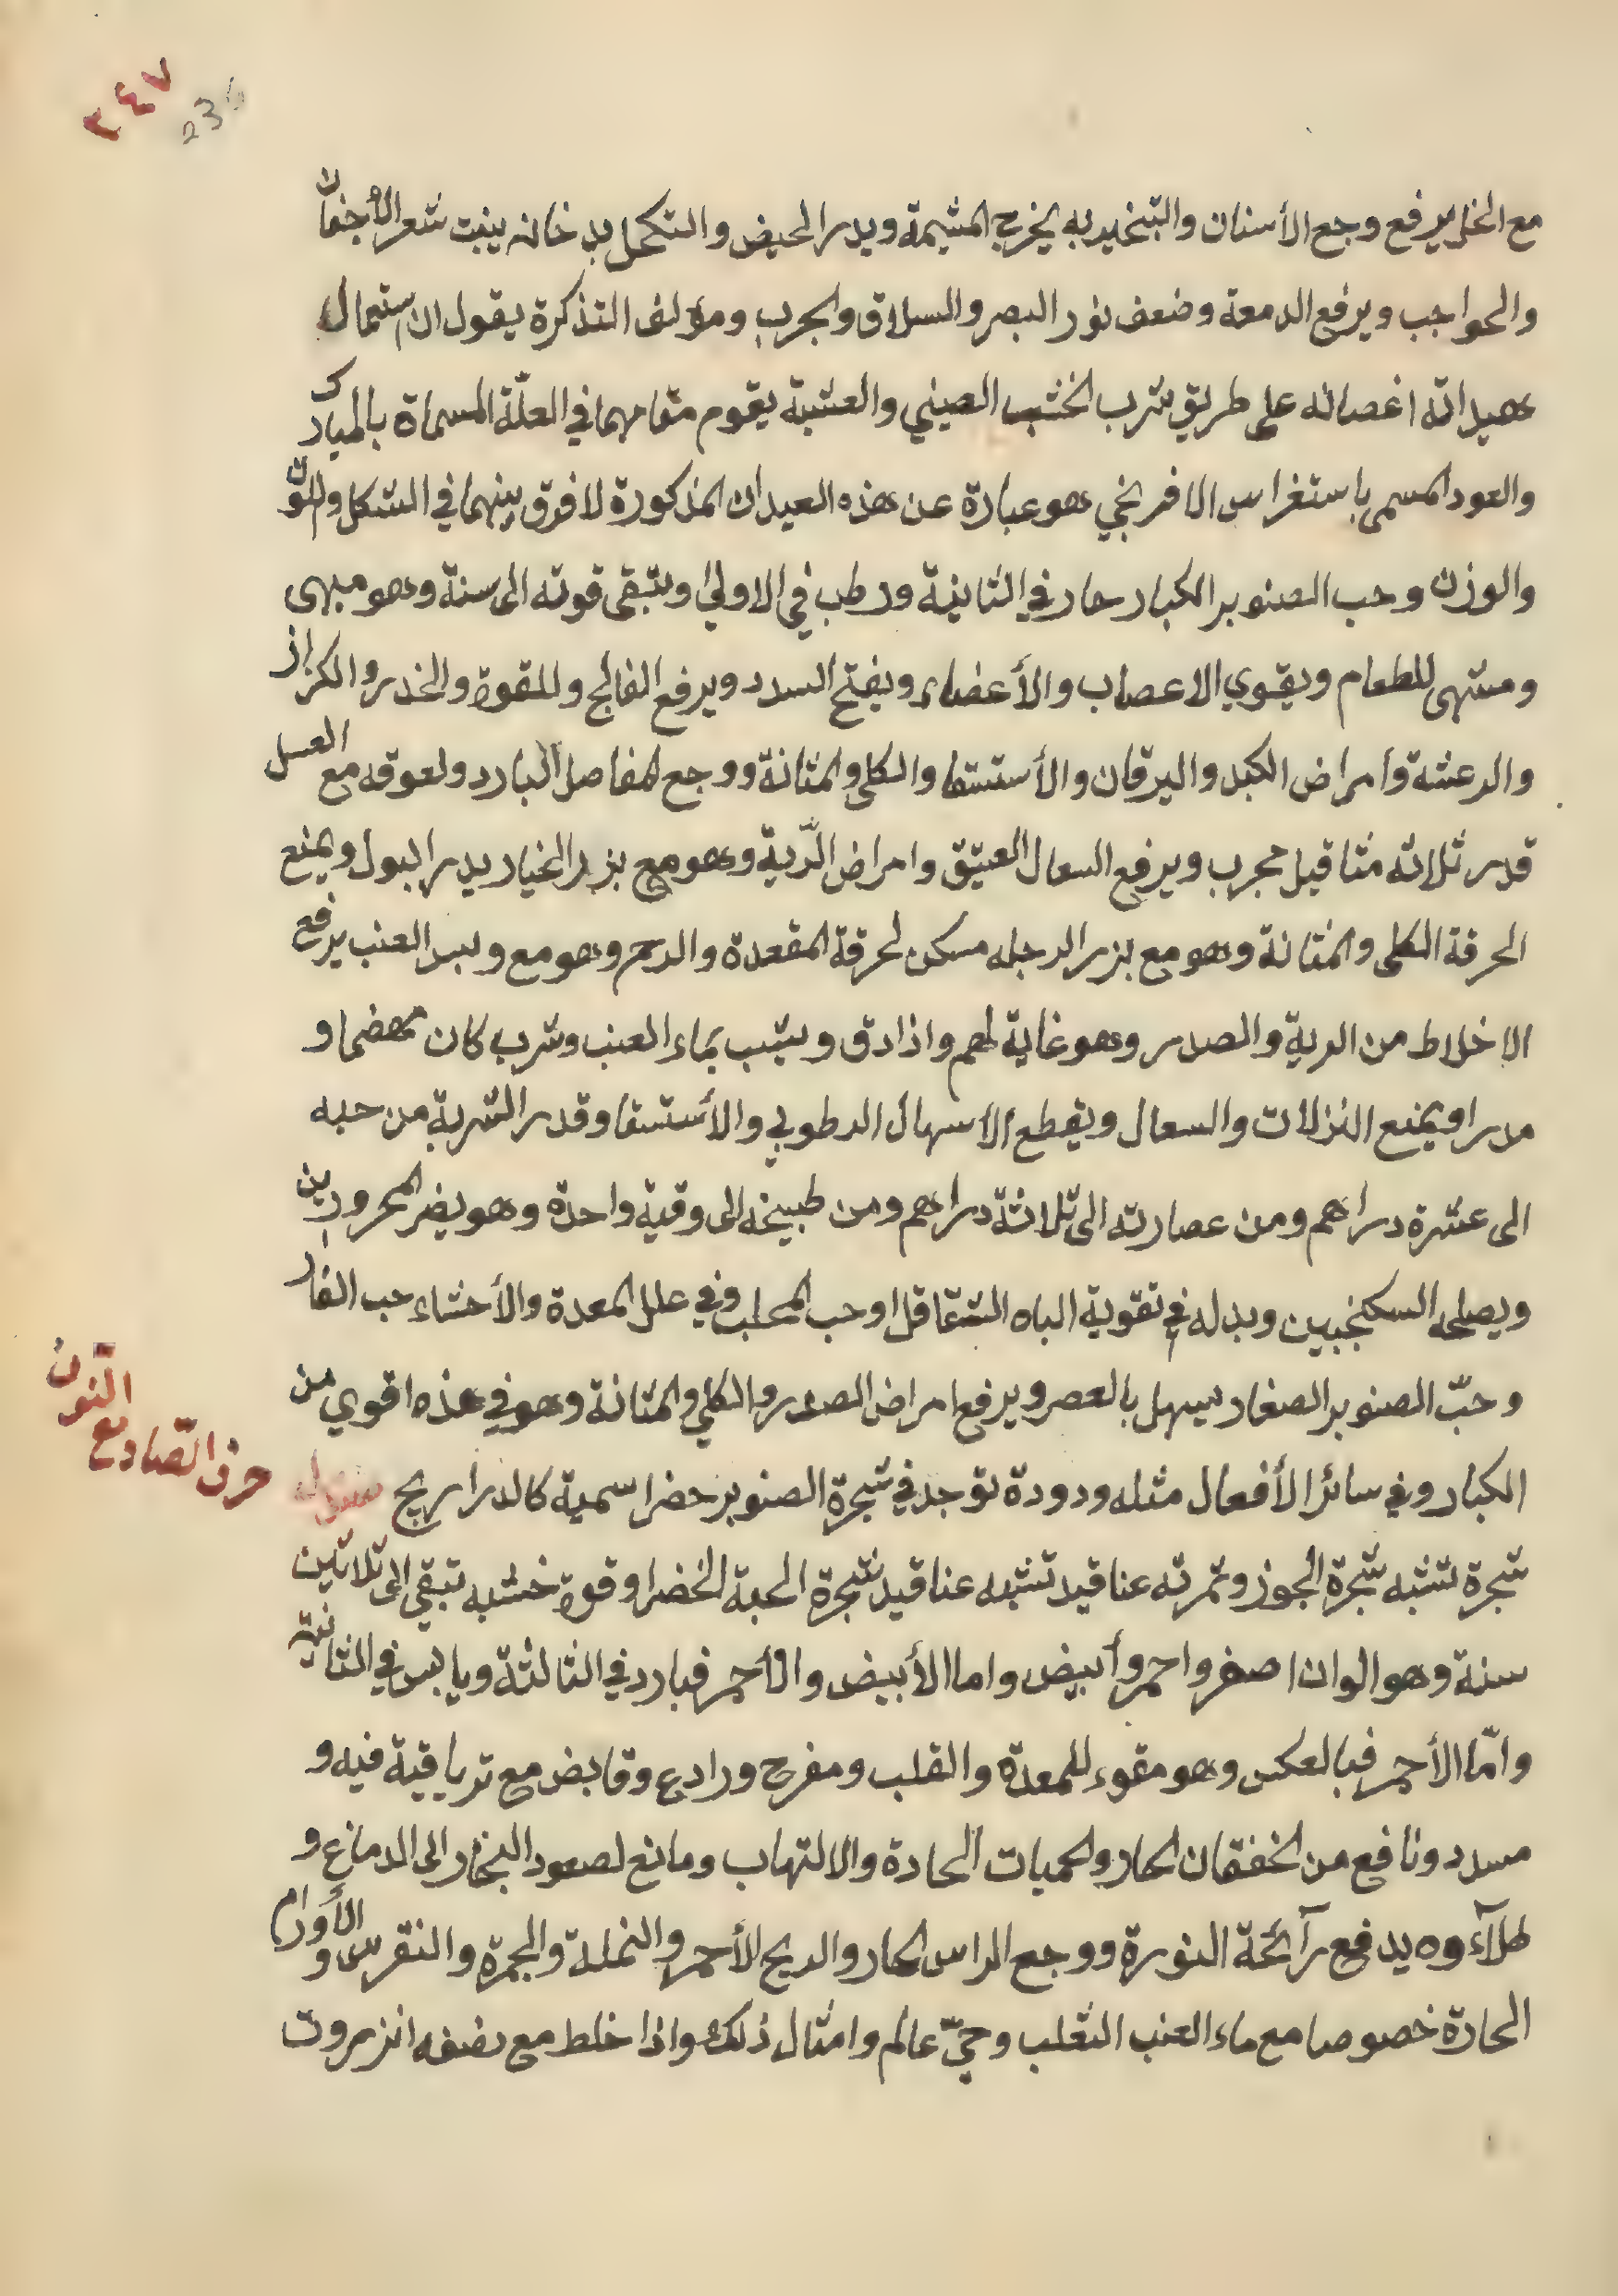 ٢٤٧
236
مع الخل يرفع وجع الأسنان والتبخير به يخرج المشيمة ويدر الحيض والتكحل بدخانه ينبت شعر الأجفان
والحواجب ويرفع الدمعة وضعف نور البصر والسلاق والجرب ومؤلف التذكرة يقول ان استعمال
اغصانه على طريق شرب الخشب الصيني والعشبة يقوم مقامهما في العلّة المسماة بالمبارك
والعود المسمى باستغراس الافرنجي هو عبارة عن هذه العيدان المذكورة لا فرق بينهما في الشكل واللون
والوزن وحب الصنوبر الكبار حار في الثانية ورطب في الاولى وتبقى قوته الى سنة وهو مبهى
ومشتهى للطعام ويقوي الاعصاب والأعضاء ويفتح السدد ويرفع الفالج واللقوة والخدر والكزاز
والرعشة وامراض الكبد واليرقان والأستسقا والكلى والمثانة ووجع المفاصل البارد ولعوقه مع العسل
قدر ثلاثه مثاقيل مجرب ويرفع السعال العتيق وامراض الرّية وهو مع بزر الخيار يدر البول ويمنع
الحرقة الكلى والمثانة وهو مع بزر الرجله مسكن لحرقة المقعدة والرحم وهو مع العنب يرفع
الاخلاط من الرية والصدر وهو غاية لهم واذا دق بماء العنب وشرب كان مهضما و
مدرا ويمنع النزلات والسعال ويقطع الأسهال الرطوبي والأستسقا وقدر الشربة من حبه
الى عشرة دراهم ومن عصارته الى ثلاثة دراهم ومن طبيخه الى وقية واحدة وهو يضر المحرورين
ويصلحه السكنجبين وبدله في تقوية الباه الشقاقل او حب المحلب وفي علل المعدة والأحشاء حب الغار
وحبّ الصنوبر الصغار يسهل بالعصر ويرفع امراض الصدر والكلى والمثانة وهو في هذه اقوى من
الكبار وفي سائر الأفعال مثله ودودة توجد في شجرة الصنوبر خضرا سمية كالدراريح
حرف الصّاد مع النّون
شجرة تشبه شجرة الجوز وثمرته عناقيد تشبه عناقيد شجرة الحبة الخضرا وقوة خشبه تبقى الى ثلاثين
سنة وهو الوان اصفر واحمر وأبيض واما الأبيض والأحمر فبارد في الثالثة ويابس في الثانية
وامّا الأحمر فبالعكس وهو مقوء للمعدة والقلب ومفرح ورادع وقابض مع ترياقية فيه و
مسدد ونافع من الخفقان الحار والحميات الحادة والالتهاب ومانع لصعود البخار الى الدماغ و
طلآءوه يدفع رآئحة النورة ووجع الراس الحار والريح الأحمر والنملة والجمرة والنقرس والأورام
الحارة خصوصا مع ماء العنب الثعلب وحيّ عالم وامثال ذلك واذا خلط مع نصفه انزروت